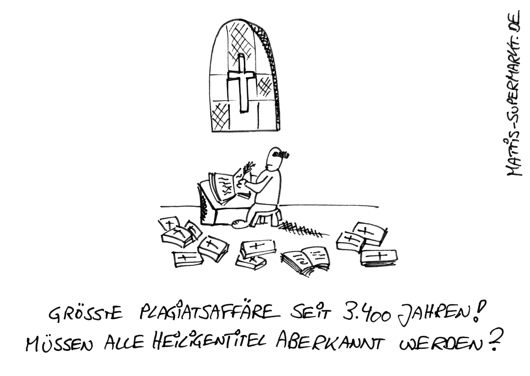 MATTIS-SUPERMARKT.DE
GRÖSSTE PLAGIATSAFFÄRE SEIT 3.400 JAHREN!
MÜSSEN ALLE HEILIGENTITEL ABERKANNT WERDEN?